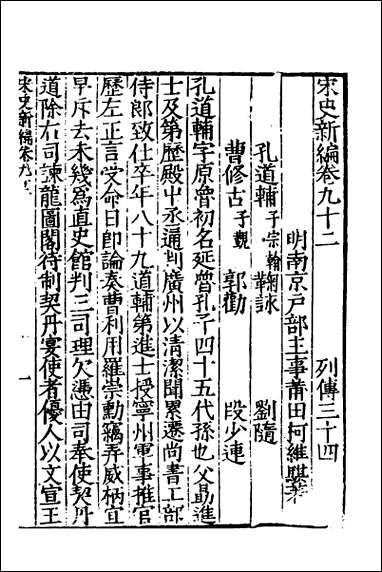 宋史新編卷九十二 列傳三十四
明南京戶部主事莆田柯維騏著
孔道輔子宗翰 鞠詠 劉隨
曹修古子覲 郭勸 段少連
孔道輔字原魯初名延魯孔子四十五代孫也父勗進
士及第歷殿中丞通判廣州以清潔聞累遷尚書工部
侍郎致仕卒年八十九道輔第進士授寧州軍事推官
歷左正言受命日即論奏曹利用羅崇勳竊弄威柄宜
早斥去未幾爲直史館判三司理欠憑由司奉使契丹
道除右司諫龍圖閣待制契丹宴使者優人以文宣王
宋史新編卷九十二
一